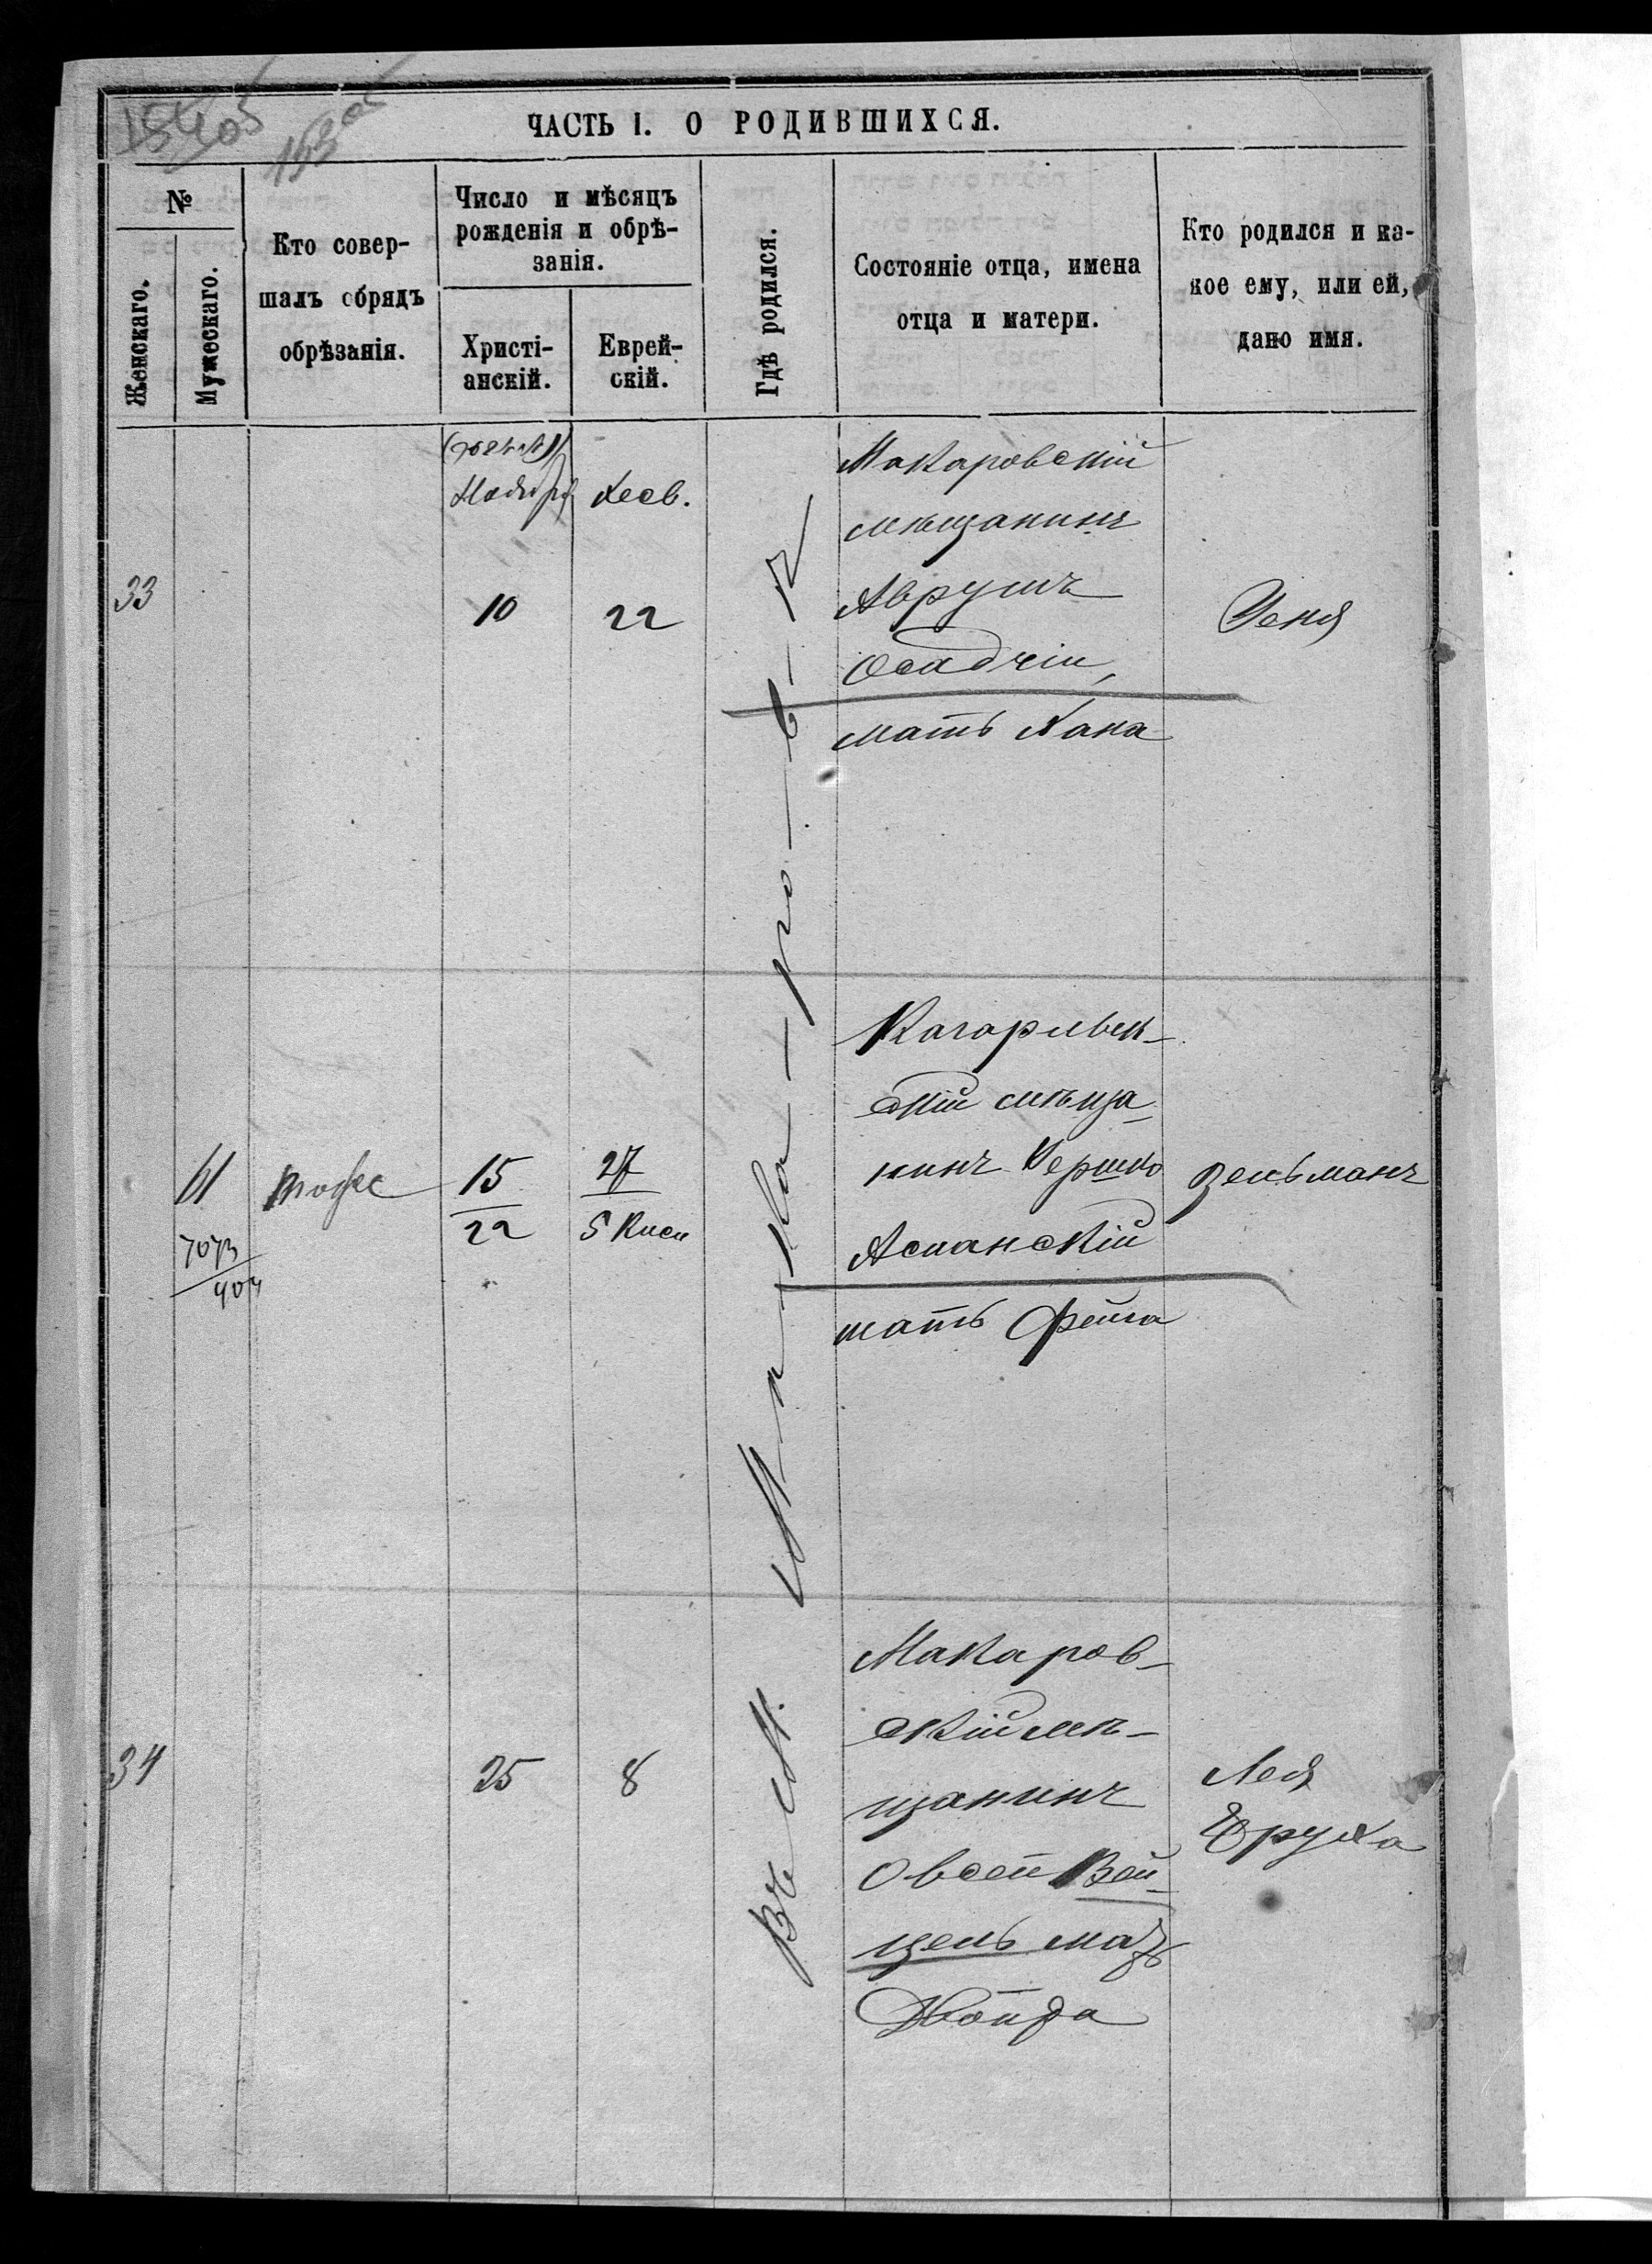 ЧАСТЬ I. О РОДИВШИХСЯ.
№
Женскаго.
Мужескаго.
Кто совер-
шалъ обрядъ
обрѣзанія.
Число и мѣсяцъ
рожденія и обрѣ-
занія.
Христі-
анскій.
Еврей-
скій.
Гдѣ родился.
Состояніе отца, имена
отца и матери.
Кто родился и ка-
кое ему, или ей,
дано имя.
Въ М.
Ноября
Хесв.
33
10
22
Макаровскій
мѣщанинъ
Аврумъ
Осадчій,
мать Хана
61
7073
404
15
22
27
5 Кисл
Кагарлык-
скій мѣща-
нинъ Гершко
Асманскій
мать Фейга
Зельманъ
34
25
8
Макаров-
скій мѣ-
щанинъ
Овсей Вай-
цель мать
Двойра
Лея
Бруха